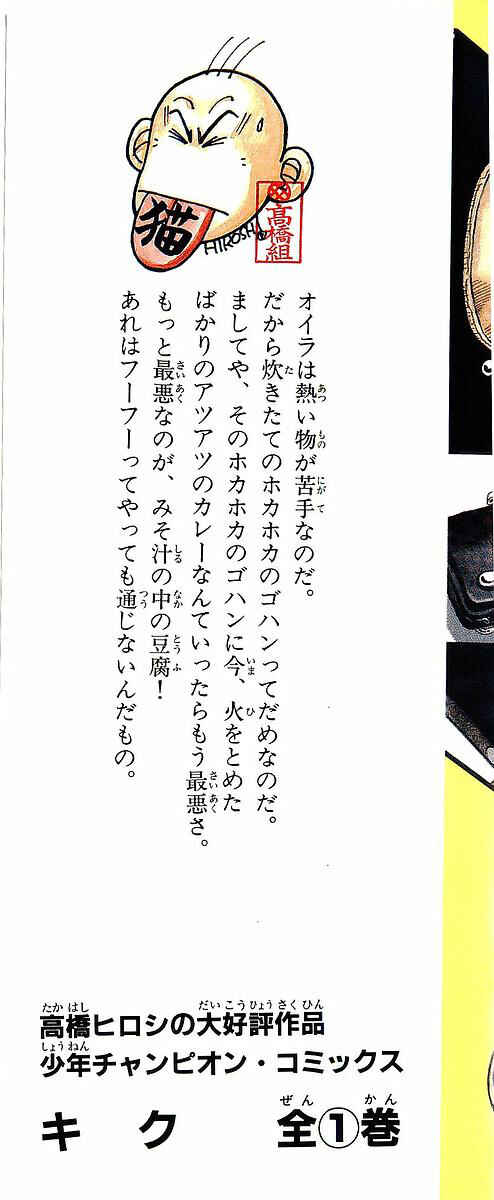 猫
HIROSHI
高橋組
オイラは熱い物が苦手なのだ。
だから炊きたてのホカホカのゴハンってだめなのだ。
ましてや、そのホカホカのゴハンに今、火をとめた
ばかりのアツアツのカレーなんていったらもう最悪さ。
もっと最悪なのが、みそ汁の中の豆腐！
あれはフーフーってやっても通じないんだもの。
高橋ヒロシの大好評作品
少年チャンピオン・コミックス
キク 全①巻